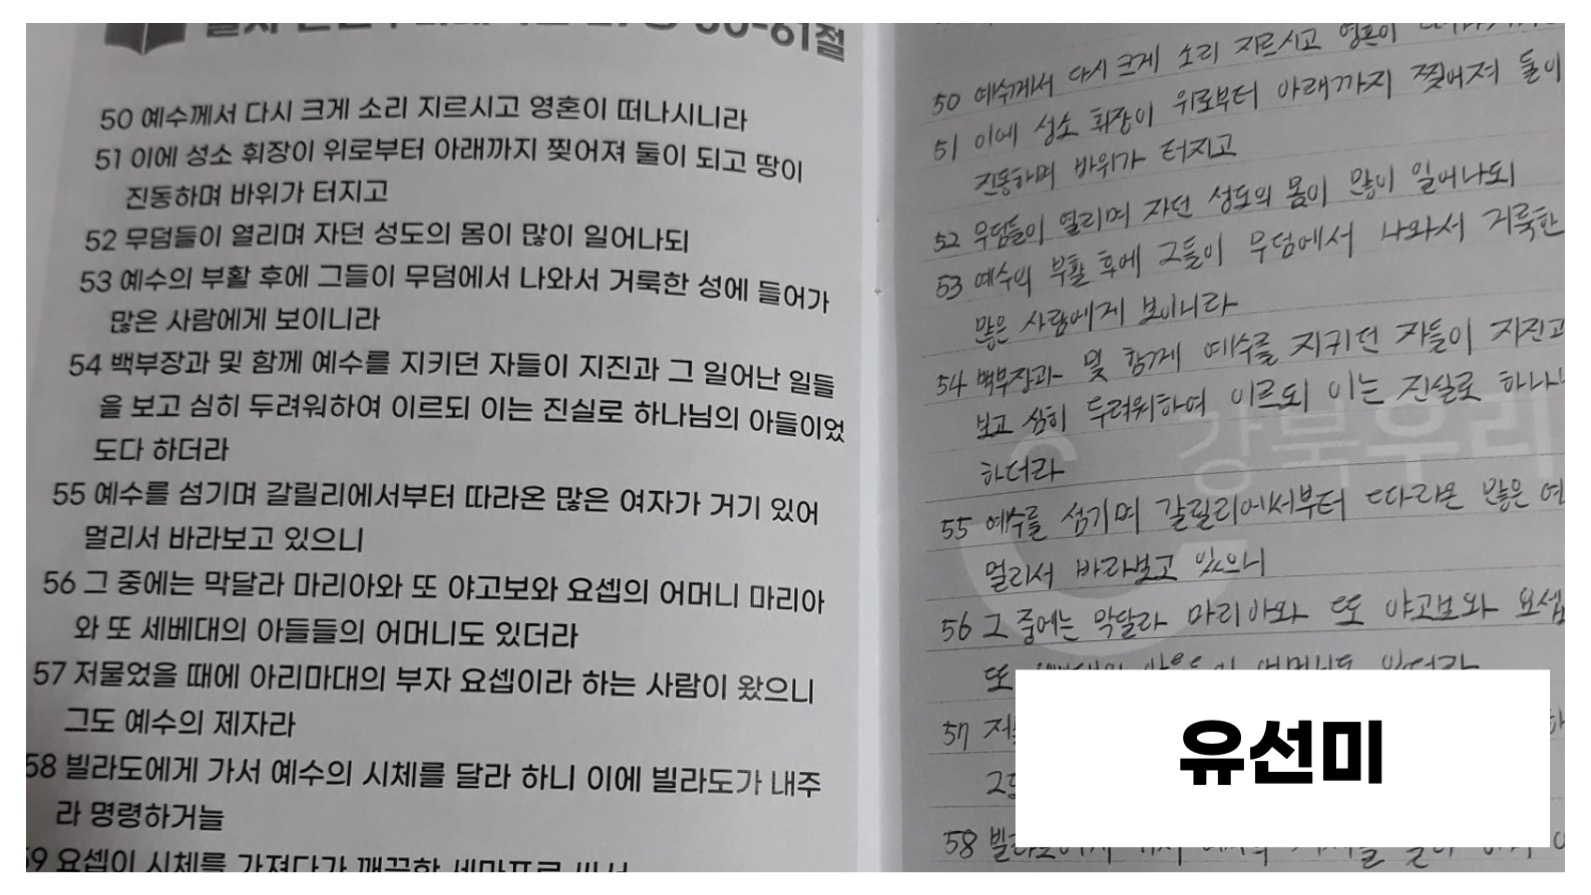 50-61절
50 예수께서 다시 크게 소리 지르시고 영혼이 떠나시니라
51 이에 성소 휘장이 위로부터 아래까지 찢어져 둘이 되고 땅이
진동하며 바위가 터지고
52 무덤들이 열리며 자던 성도의 몸이 많이 일어나되
53 예수의 부활 후에 그들이 무덤에서 나와서 거룩한 성에 들어가
많은 사람에게 보이니라
54 백부장과 및 함께 예수를 지키던 자들이 지진과 그 일어난 일들
을 보고 심히 두려워하여 이르되 이는 진실로 하나님의 아들이었
도다 하더라
55 예수를 섬기며 갈릴리에서부터 따라온 많은 여자가 거기 있어
멀리서 바라보고 있으니
56 그 중에는 막달라 마리아와 또 야고보와 요셉의 어머니 마리아
와 또 세베대의 아들들의 어머니도 있더라
57 저물었을 때에 아리마대의 부자 요셉이라 하는 사람이 왔으니
그도 예수의 제자라
58 빌라도에게 가서 예수의 시체를 달라 하니 이에 빌라도가 내주
라 명령하거늘
59 요셉이 시체를 가져다가 깨끗한 세마포로 싸서
50 예수께서 다시 크게 소리 지르시고 영혼이
51 이에 성소 휘장이 위로부터 아래까지 찢어져 둘이
진동하며 바위가 터지고
52 무덤들이 열리며 자던 성도의 몸이 많이 일어나되
53 예수의 부활 후에 그들이 무덤에서 나와서 거룩한
많은 사람에게 보이니라
54 백부장과 및 함께 예수를 지키던 자들이 지진과
보고 심히 두려워하여 이르되 이는 진실로 하나
하더라
55 예수를 섬기며 갈릴리에서부터 따라온 많은 여
멀리서 바라보고 있으니
56 그 중에는 막달라 마리아와 또 야고보와 요셉
또 어머니도 있더라
57
58
강북우리
유선미